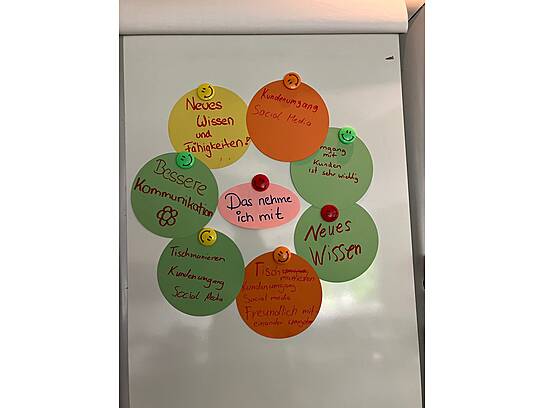 Das nehme
ich mit
Neues
Wissen
und
Fähigkeiten!
Kundenumgang
Social Media
mgang
mit
Kunden
ist sehr wichtig
Neues
Wissen
Tisch
manieren
Kundenumgang
Social media
Freundlich mit
einander umgehen
Tischmanieren
Kundenumgang
Social Media
Bessere
Kommunikation